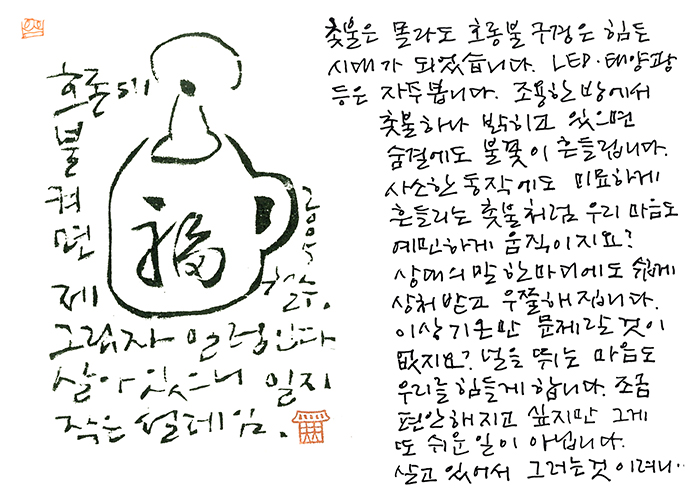 호롱에
불
켜
면
제
그림자 일렁인다
살아 있으니 일지
작은 설레임.
福
2005
철수.
촛불은 몰라도 호롱불 구경은 힘든
시대가 되었습니다. LED·태양광
등은 자주 봅니다. 조용한 방에서
촛불하나 밝히고 있으면
숨결에도 불꽃이 흔들립니다.
사소한 동작에도 미묘하게
흔들리는 촛불처럼 우리 마음도
예민하게 움직이지요?
상대의 말 한마디에도 쉽게
상처받고 우쭐해집니다.
이상기온만 문제랄 것이
없지요? 널을 뛰는 마음도
우리를 힘들게 합니다. 조금
편안해지고 싶지만 그게
또 쉬운 일이 아닙니다.
살고 있어서 그러는 것이려니··